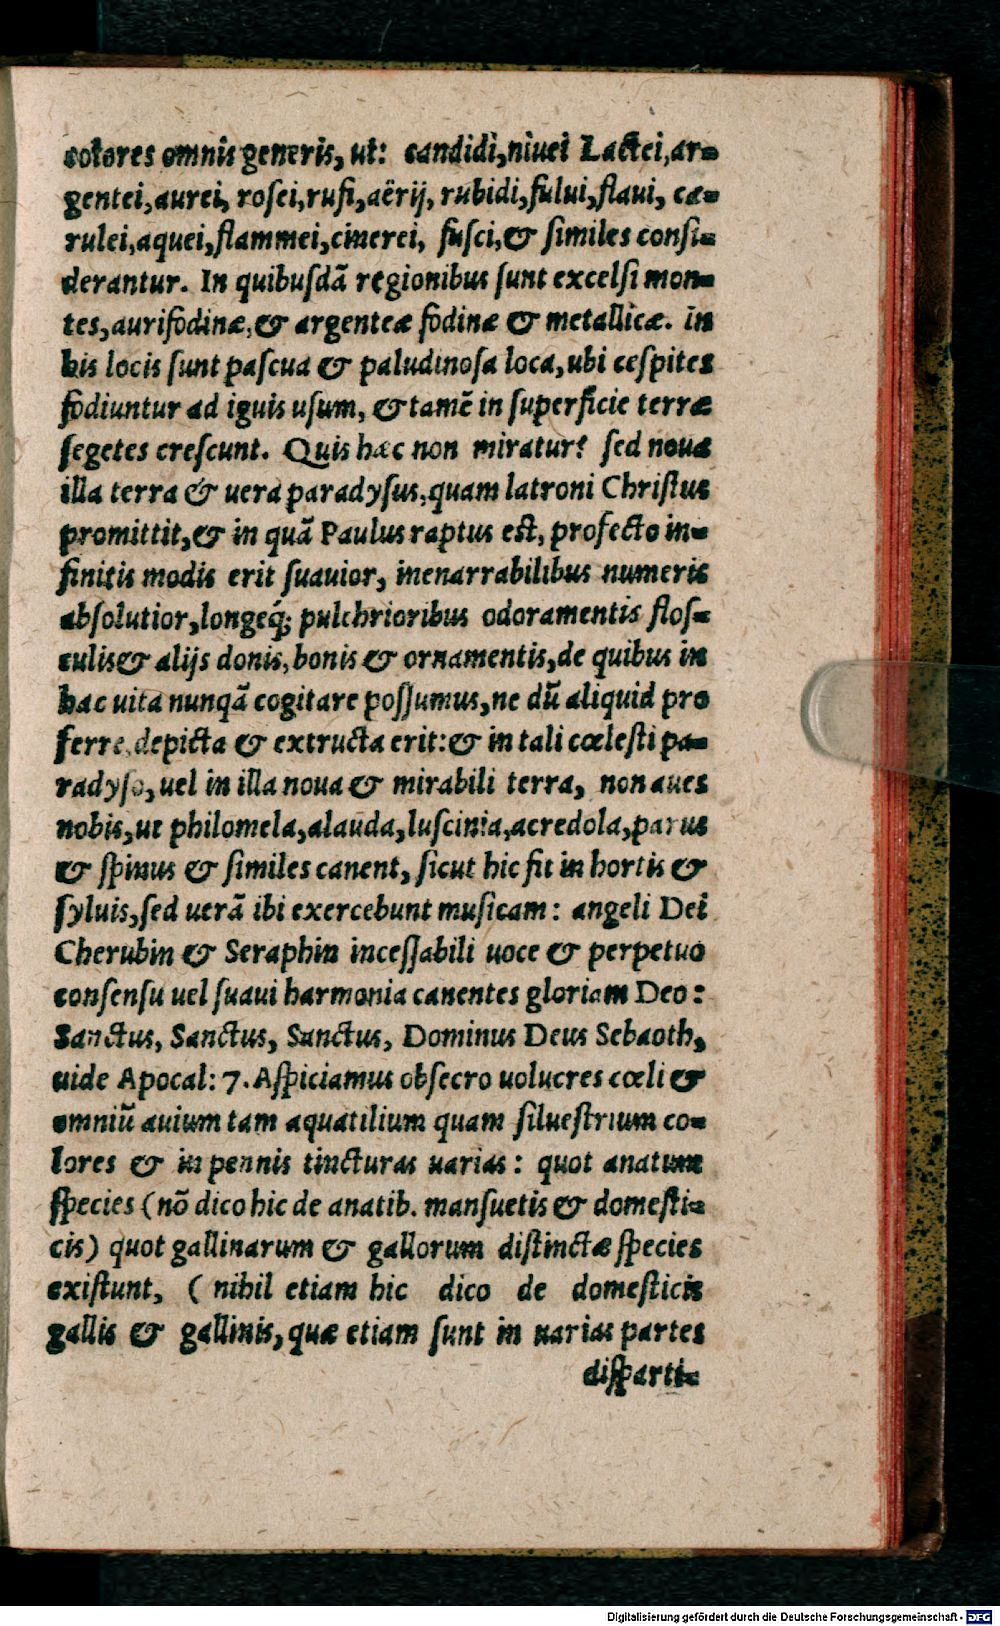 colores omnis generis, ut: candidi, niuei Lactei, ar-
gentei, aurei, rosei, rufi, aërij, rubidi, fului, flaui, cæ-
rulei, aquei, flammei, cinerei, fusci, & similes consi-
derantur. In quibusdā regionibus sunt excelsi mon-
tes, aurifodinæ, & argenteæ fodinæ & metallicæ. in
his locis sunt pascua & paludinosa loca, ubi cespites
fodiuntur ad iguis usum, & tamē in superficie terræ
segetes crescunt. Quis hæc non miratur? sed noua
illa terra & uera paradysus, quam latroni Christus
promittit, & in quā Paulus raptus est, profecto in-
finitis modis erit suauior, inenarrabilibus numeris
absolutior, longeq́; pulchrioribus odoramentis flos-
culis & alijs donis, bonis & ornamentis, de quibus in
hac uita nunqā cogitare possumus, ne dū aliquid pro
ferre, depicta & extructa erit: & in tali cœlesti pa-
radyso, uel in illa noua & mirabili terra, non aues
nobis, ut philomela, alauda, luscinia, acredola, parus
& spinus & similes canent, sicut hic fit in hortis &
syluis, sed uerā ibi exercebunt musicam: angeli Dei
Cherubin & Seraphin incessabili uoce & perpetuo
consensu uel suaui harmonia canentes gloriam Deo:
Sanctus, Sanctus, Sanctus, Dominus Deus Sebaoth,
uide Apocal: 7. Aspiciamus obsecro uolucres cœli &
omniū auium tam aquatilium quam siluestrium co-
lores & in pennis tincturas uarias: quot anatum
species (nō dico hic de anatib. mansuetis & domesti-
cis) quot gallinarum & gallorum distinctæ species
existunt, ( nihil etiam hic dico de domesticis
gallis & gallinis, quæ etiam sunt in uarias partes
disparti-
Digitalisierung gefördert durch die Deutsche Forschungsgemeinschaft - DFG